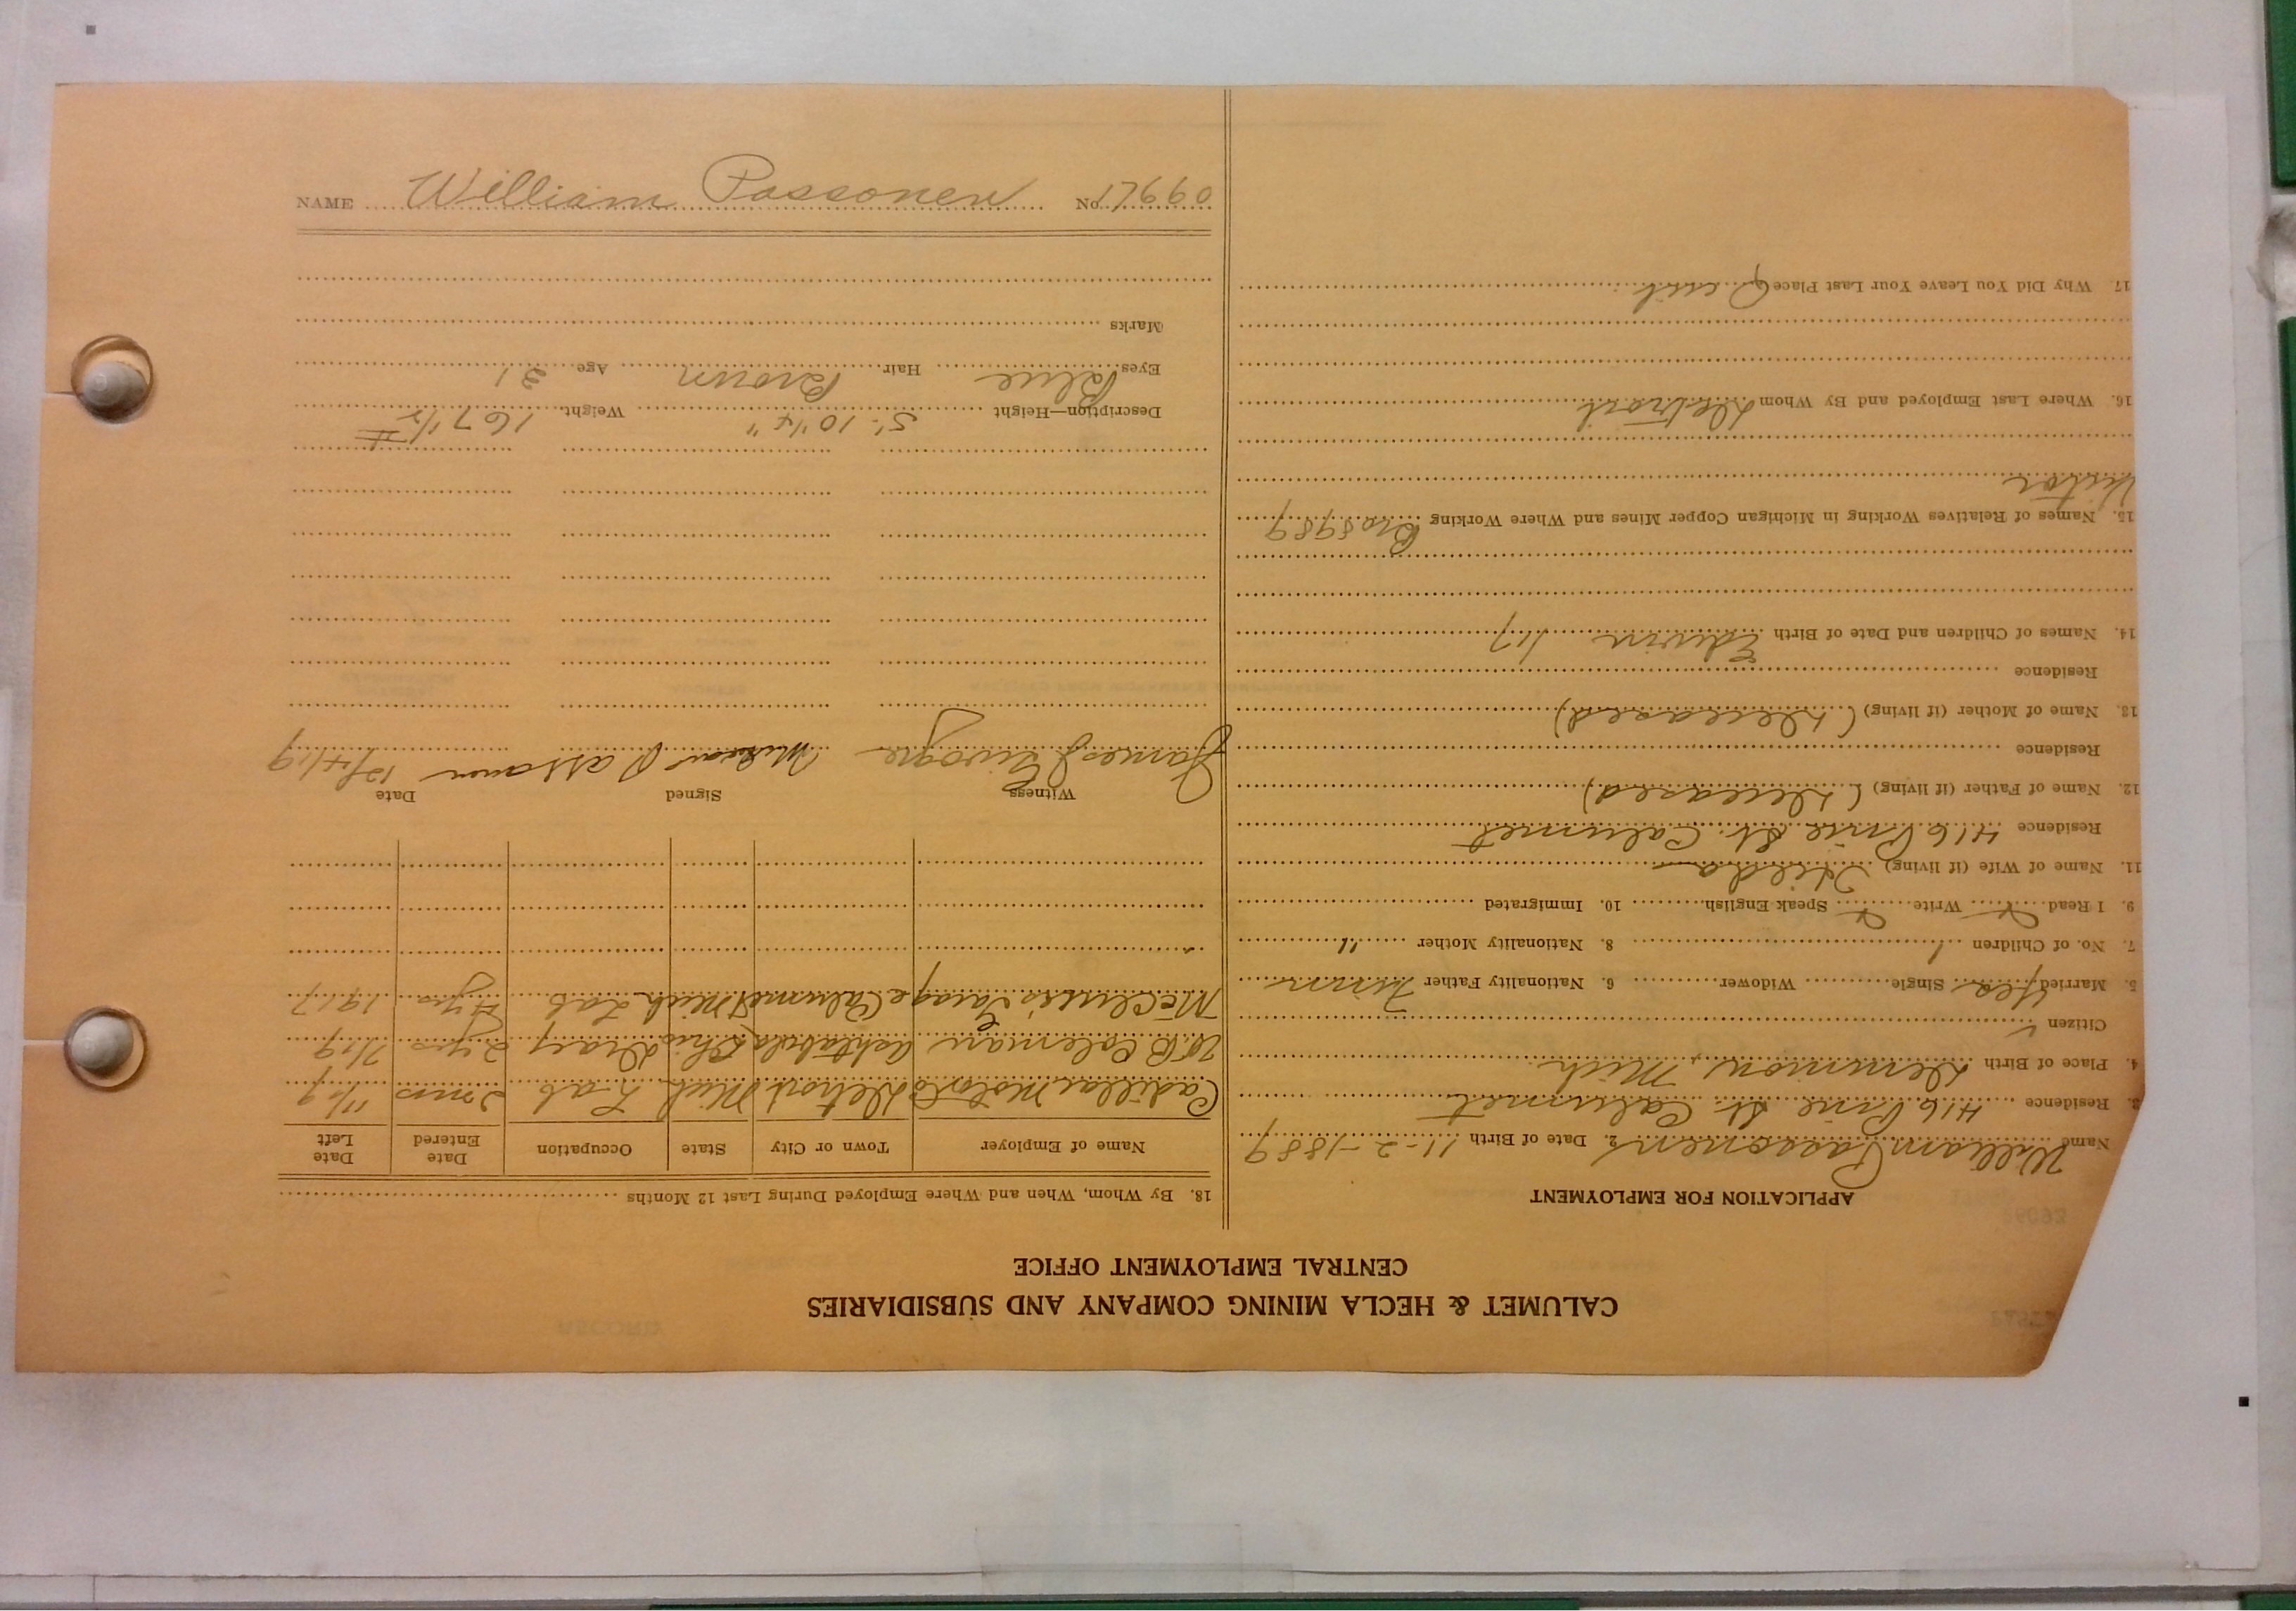 CALUMET & HECLA MINING COMPANY AND SUBSIDIARIES
CENTRAL EMPLOYMENT OFFICE
APPLICATION FOR EMPLOYMENT
Name William Passonen 2. Date of Birth 11-2-1889
3. Residence 416 Pine St. Calumet
4. Place of Birth Mich
Citizen
5. Married Yes Single Widower 6. Nationality Father Finn
7. No. of Children 1 8. Nationality Mother "
9. I Read Write Speak English 10. Immigrated
11. Name of Wife (if living) Hilda
Residence 416 Pine St. Calumet
12. Name of Father (if living) (Deceased)
Residence
13. Name of Mother (if living) (Deceased)
Residence
14. Names of Children and Date of Birth Edwin 1/17
15. Names of Relatives Working in Michigan Copper Mines and Where Working Bro 8989
Victor
16. Where Last Employed and By Whom Detroit
17. Why Did You Leave Your Last Place Quit
18. By Whom, When and Where Employed During Last 12 Months
Name of Employer Town or City State Occupation Date Entered Date Left
Cadillac Motor Co Detroit Mich Lab 2 mos 11/09
W.B. Coleman Ashtabula Ohio Dray 2 yrs 7/19
McClure's Garage Calumet Mich Lab 4 yrs 1917
Witness Signed Date
James William Passonen 12/4/19
Description—Height 5' 10 1/4" Weight 167 1/2 #
Eyes Blue Hair Brown Age 31
Marks
NAME William Passonen No. 17660